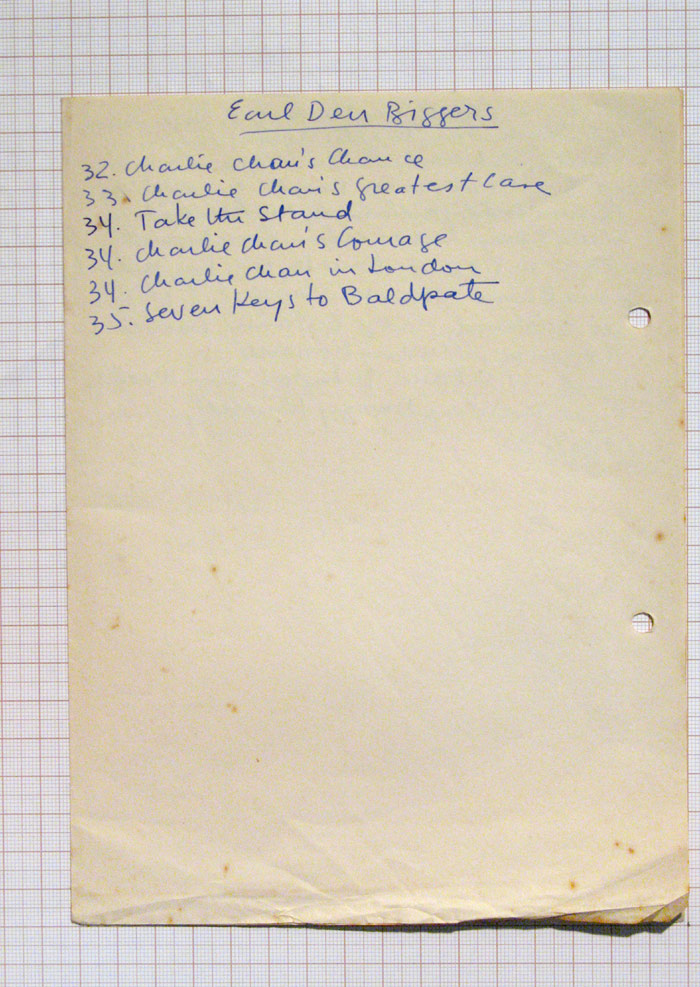 Earl Derr Biggers
32. Charlie Chan's Chance
33. Charlie Chan's greatest Case
34. Take the Stand
34. Charlie Chan's Courage
34. Charlie Chan in London
35. Seven Keys to Baldpate